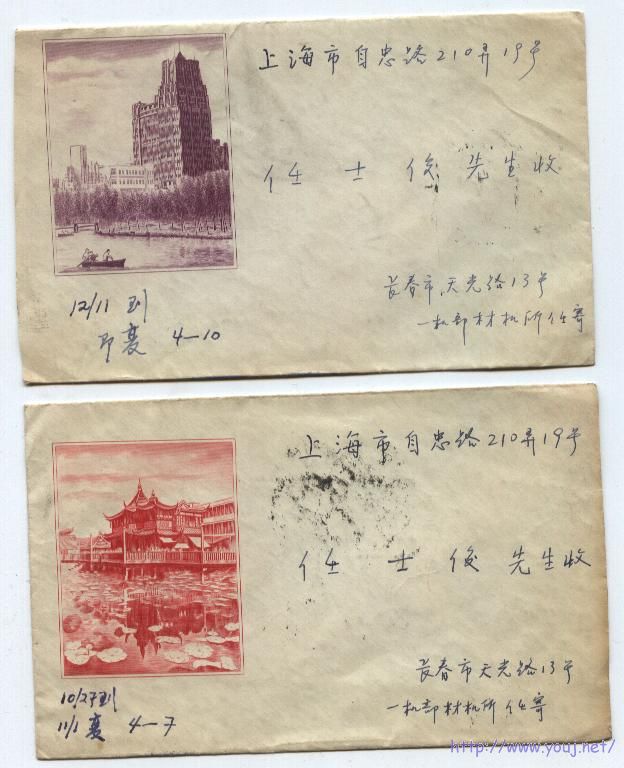 上海市自忠路210弄19号
任士俊先生收
长春市天光路13号
一机部材机所任寄
12/11 到
即复 4—10
上海市自忠路210弄19号
任士俊先生收
长春市天光路13号
一机部材机所任寄
10/27到
11/1 复 4—7
http://www.youj.net/